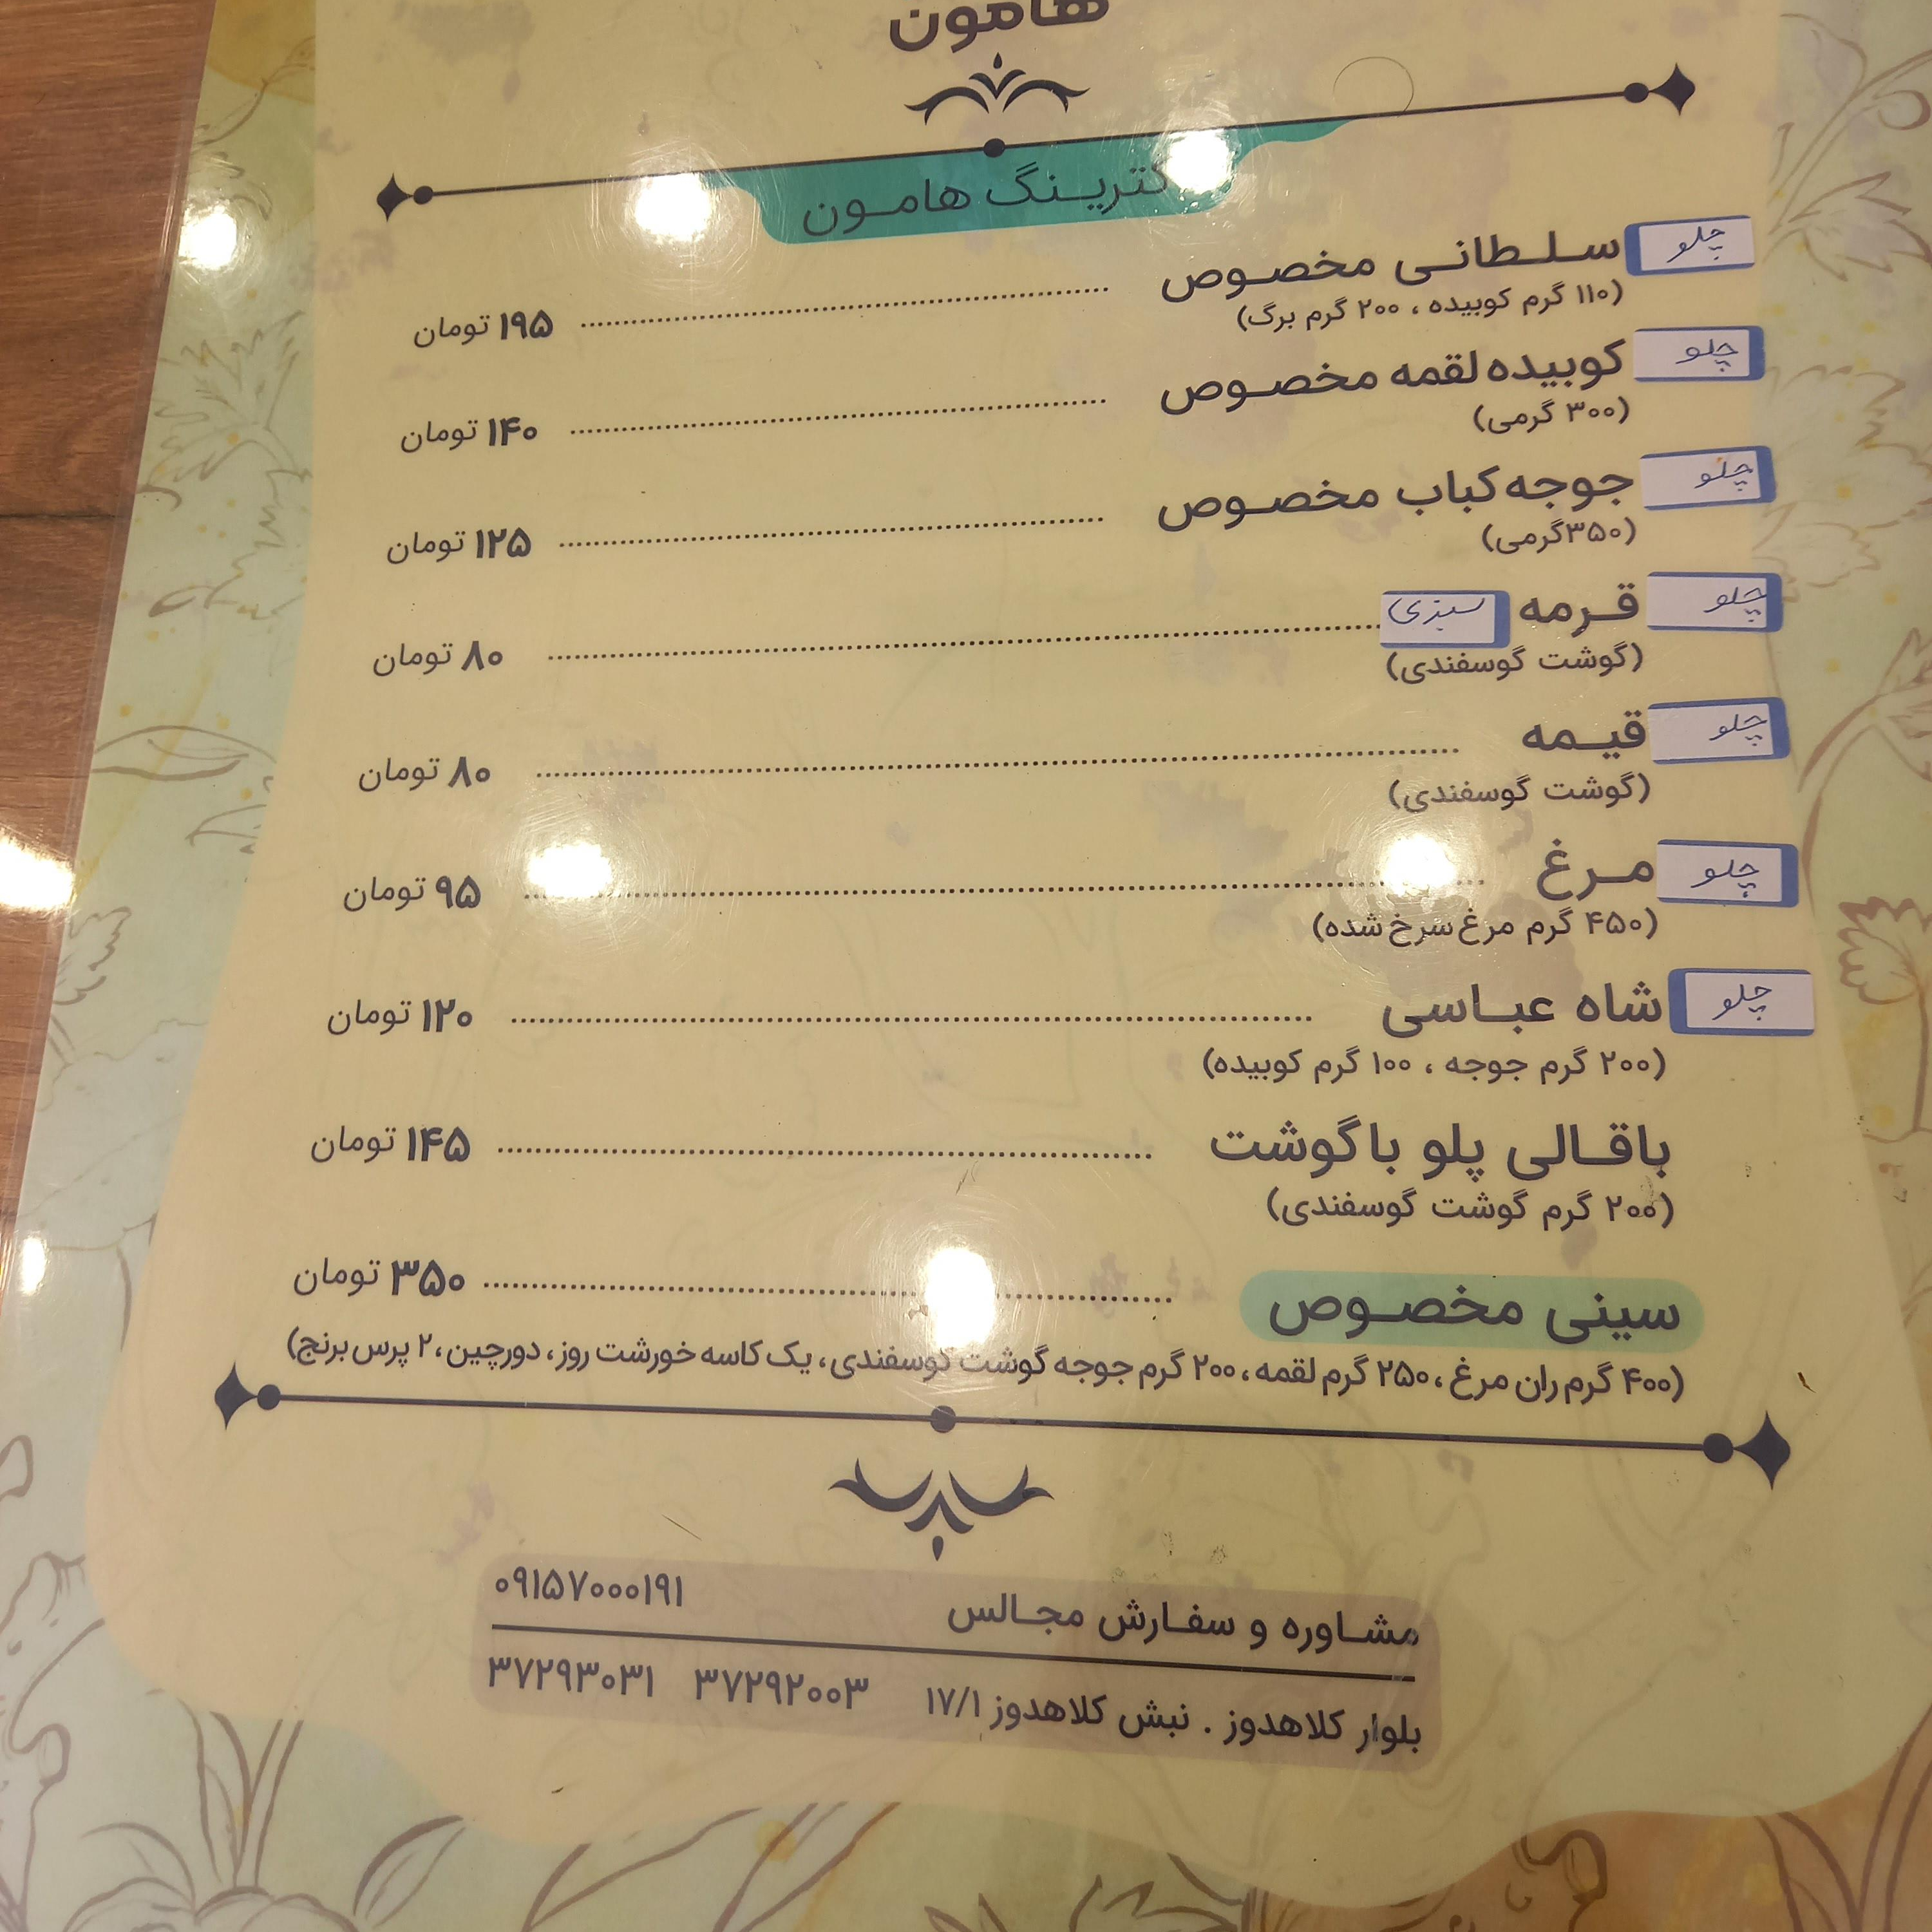 هامون
کترینگ هامون
چلو سلطانی مخصوص ۱۹۵ تومان
(۱۱۰ گرم کوبیده ، ۲۰۰ گرم برگ)
چلو کوبیده لقمه مخصوص ۱۴۰ تومان
(۳۰۰ گرمی)
چلو جوجه کباب مخصوص ۱۲۵ تومان
(۳۵۰گرمی)
چلو قرمه سبزی ۸۰ تومان
(گوشت گوسفندی)
چلو قیمه ۸۰ تومان
(گوشت گوسفندی)
چلو مرغ ۹۵ تومان
(۴۵۰ گرم مرغ سرخ شده)
چلو شاه عباسی ۱۲۰ تومان
(۲۰۰ گرم جوجه ، ۱۰۰ گرم کوبیده)
باقالی پلو با گوشت ۱۴۵ تومان
(۲۰۰ گرم گوشت گوسفندی)
سینی مخصوص ۳۵۰ تومان
(۴۰۰ گرم ران مرغ ، ۲۵۰ گرم لقمه ، ۲۰۰ گرم جوجه گوشت گوسفندی ، یک کاسه خورشت روز ، دورچین ، ۲ پرس برنج)
مشاوره و سفارش مجالس ۰۹۱۵۷۰۰۰۱۹۱
بلوار کلاهدوز . نبش کلاهدوز ۱۷/۱ ۳۷۲۹۲۰۰۳ ۳۷۲۹۳۰۳۱